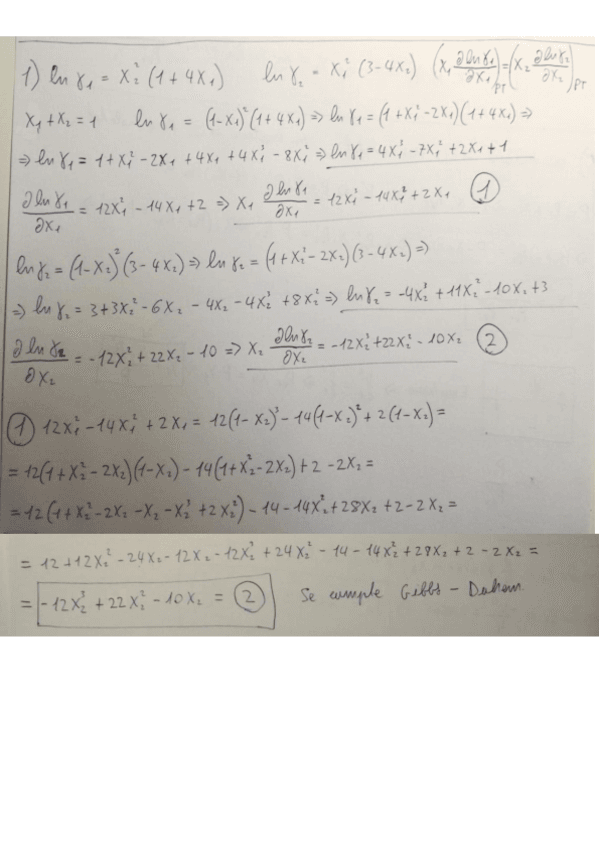 1) ln γ₁ = x₂² (1 + 4x₁)   ln γ₂ = x₁² (3 - 4x₂)   (x₁ ∂ln γ₁/∂x₁)PT = (x₂ ∂ln γ₂/∂x₂)PT
x₁ + x₂ = 1   ln γ₁ = (1-x₁)² (1 + 4x₁) => ln γ₁ = (1 + x₁² - 2x₁)(1 + 4x₁) =>
=> ln γ₁ = 1 + x₁² - 2x₁ + 4x₁ + 4x₁³ - 8x₁² => ln γ₁ = 4x₁³ - 7x₁² + 2x₁ + 1
∂ln γ₁/∂x₁ = 12x₁² - 14x₁ + 2 => x₁ ∂ln γ₁/∂x₁ = 12x₁³ - 14x₁² + 2x₁   ①
ln γ₂ = (1-x₂)² (3 - 4x₂) => ln γ₂ = (1 + x₂² - 2x₂)(3 - 4x₂) =>
=> ln γ₂ = 3 + 3x₂² - 6x₂ - 4x₂ - 4x₂³ + 8x₂² => ln γ₂ = -4x₂³ + 11x₂² - 10x₂ + 3
∂ln γ₂/∂x₂ = -12x₂² + 22x₂ - 10 => x₂ ∂ln γ₂/∂x₂ = -12x₂³ + 22x₂² - 10x₂   ②
① 12x₁³ - 14x₁² + 2x₁ = 12(1-x₂)³ - 14(1-x₂)² + 2(1-x₂) =
= 12(1 + x₂² - 2x₂)(1-x₂) - 14(1 + x₂² - 2x₂) + 2 - 2x₂ =
= 12(1 + x₂² - 2x₂ - x₂ - x₂³ + 2x₂²) - 14 - 14x₂² + 28x₂ + 2 - 2x₂ =
= 12 + 12x₂² - 24x₂ - 12x₂ - 12x₂³ + 24x₂² - 14 - 14x₂² + 28x₂ + 2 - 2x₂ =
= -12x₂³ + 22x₂² - 10x₂ = ②   Se cumple Gibbs - Duhem